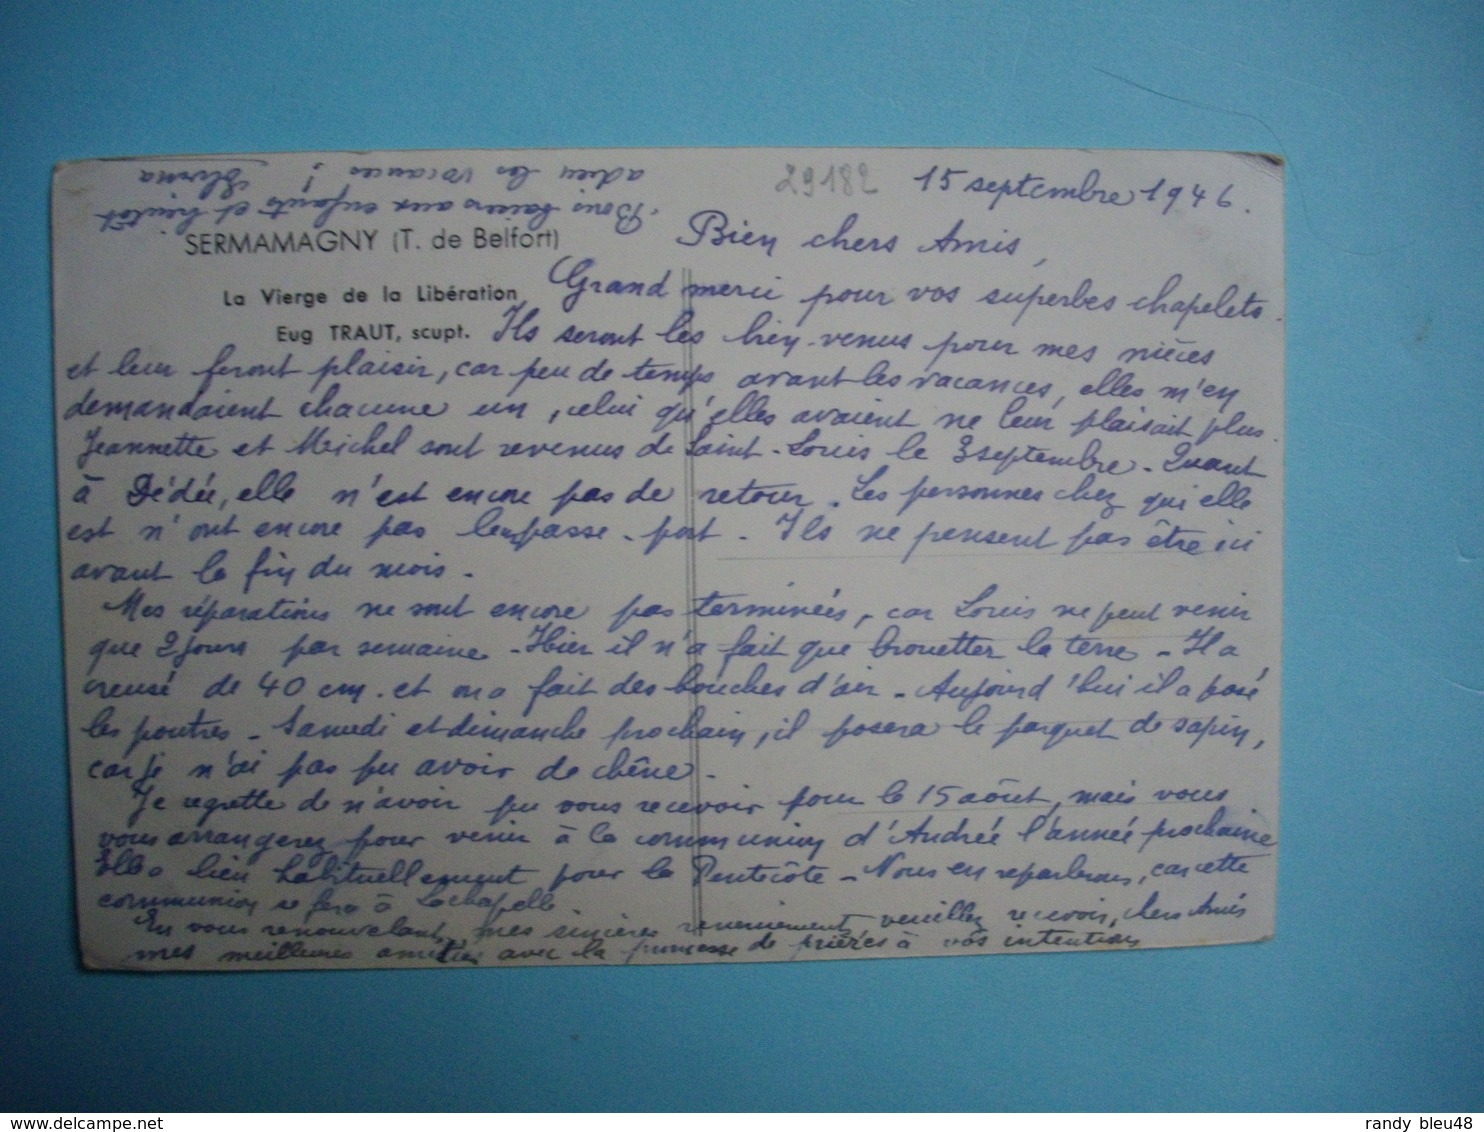 29182 15 septembre 1946.
Bien chers Amis,
SERMAMAGNY (T. de Belfort)
La Vierge de la Libération
Eug TRAUT, scupt.
Grand merci pour vos superbes chapelets.
Ils seront les bien-venus pour mes nièces
et leur feront plaisir, car peu de temps avant les vacances, elles m'en
demandaient chacune un, celui qu'elles avaient ne leur plaisait plus.
Jeannette et Michel sont revenus de Saint-Louis le 3 septembre - Quant
à Dédée, elle n'est encore pas de retour. Les personnes chez qui elle
est n'ont encore pas le passe-port. Ils ne pensent pas être ici
avant la fin du mois.
Mes réparations ne sont encore pas terminées, car Louis ne peut venir
que 2 jours par semaine - Hier il n'a fait que brouetter la terre - Il a
creusé de 40 cm. et on a fait des bouches d'air - Aujourd'hui il a posé
les poutres - Samedi et dimanche prochain, il posera le parquet de sapin,
car je n'ai pas pu avoir de chêne.
Je regrette de n'avoir pu vous recevoir pour le 15 août, mais vous
vous arrangerez pour venir à la communion d'Andrée l'année prochaine
Elle a lieu habituellement pour la Pentecôte - Nous en reparlerons, car cette
communion se fera à Lachapelle
En vous renouvelant, mes sincères remerciements veuillez recevoir, chers Amis
mes meilleures amitiés avec la promesse de prières à vos intentions
Bons baisers aux enfants et bientôt
adieu les vacances !